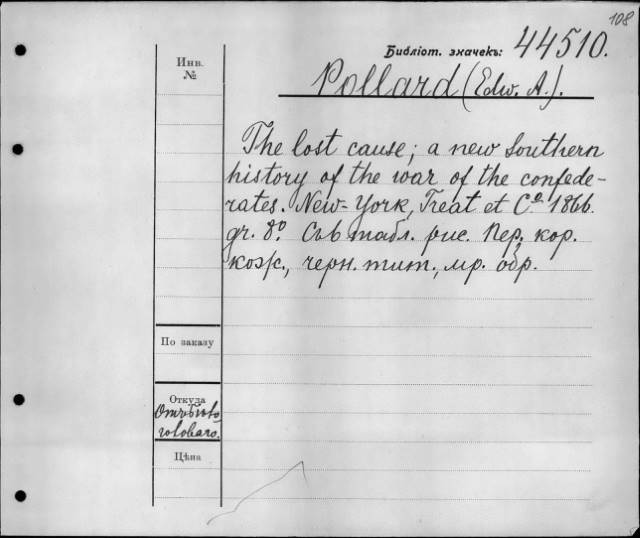 108
Библіот. значекъ: 44510.
Инв.
№
Pollard (Edw. A.).
The lost cause; a new Southern
history of the war of the confede-
rates. New-York, Treat et Cº 1866.
gr. 8º. Съ табл. рис. Пер. кор.
кож., черн. тит., мр. обр.
По заказу
Откуда
Цѣна